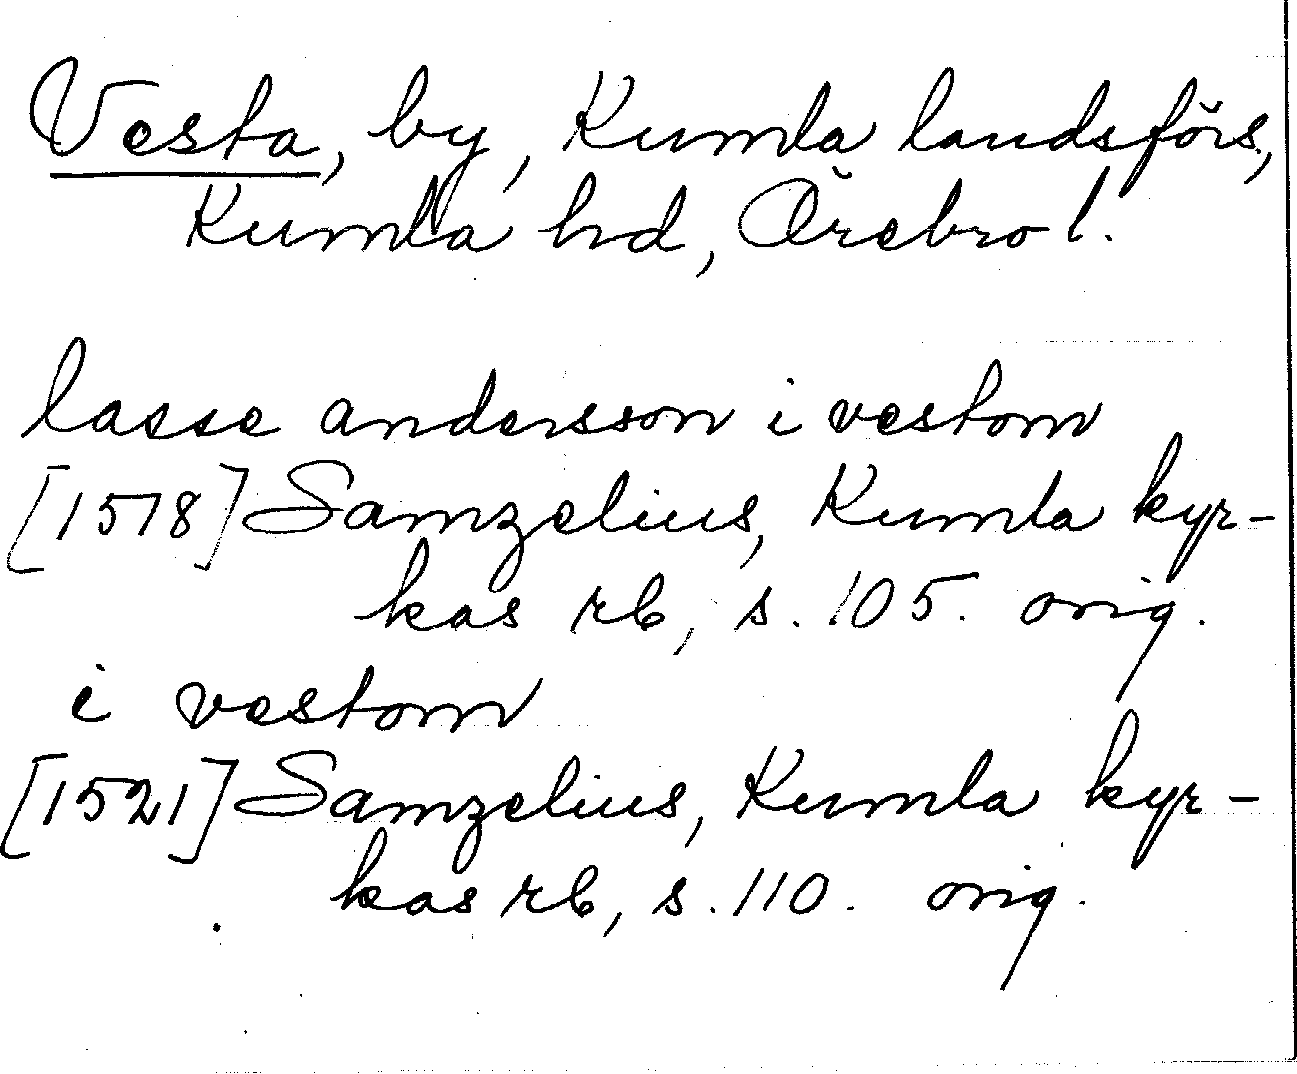 Vesta, by, Kumla landsförs,
Kumla hd, Örebro l.
lasse andersson i vestom
[1518] Samzelius, Kumla kyr-
kas rb, s. 105. orig.
i vestom
[1521] Samzelius, Kumla kyr-
kas rb, s. 110. orig.